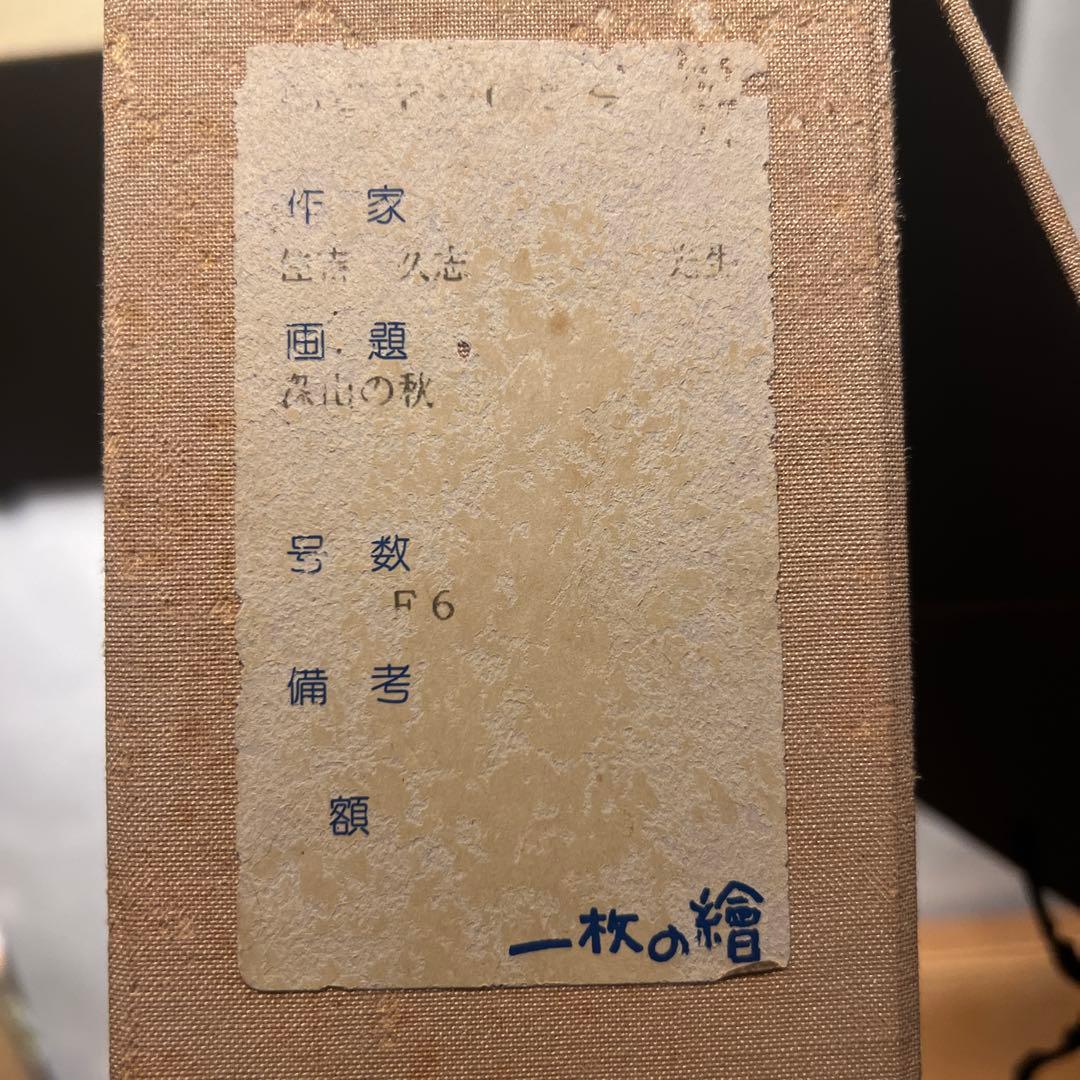 作家
久志 先生
画題
深山の秋
号数
F6
備考
額
一枚の繪